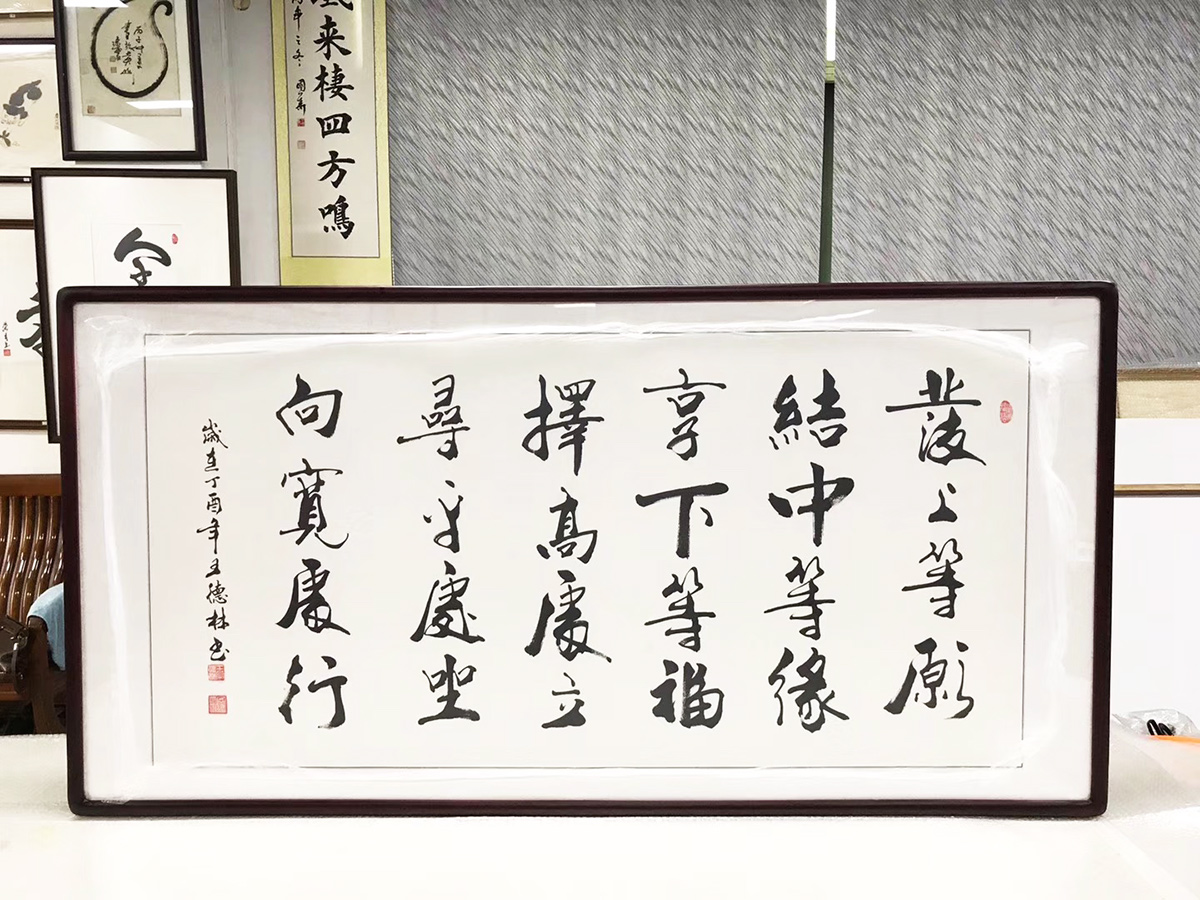 發上等願
結中等緣
享下等福
擇高處立
尋平處坐
向寬處行
歲在丁酉年王德林書
來棲四方鳴
年之冬